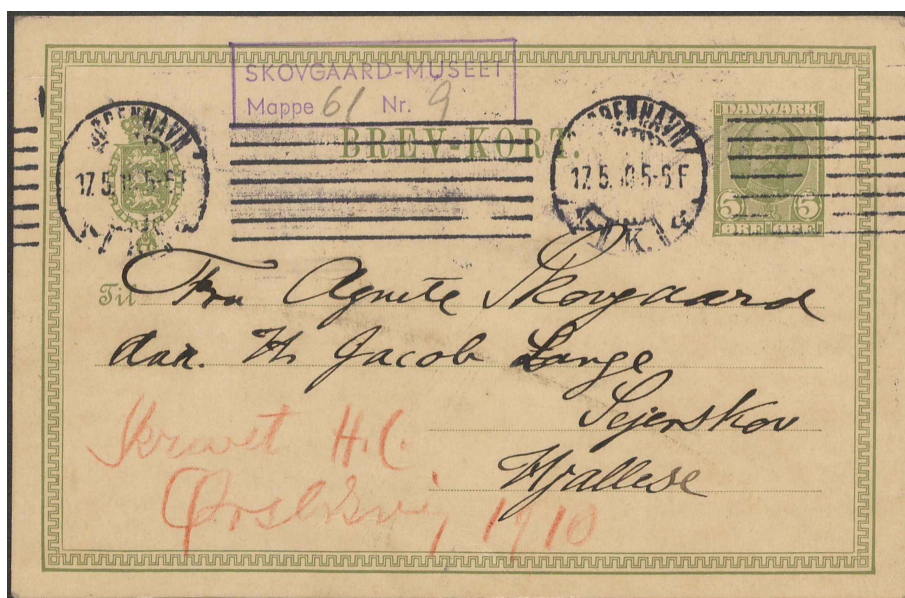 SKOVGAARD-MUSEET
Mappe 61 Nr. 9
BREV-KORT.
KØBENHAVN
17.5.10 5-6 F
K.
KØBENHAVN
17.5.10 5-6 F
K.
DANMARK
5 5
ØRE ØRE
Til Fru Agnete Skovgaard
Hr. Jacob Lange
Sejerskov
Hjallese
Skrevet H.C.
Ørstedsvej 1910